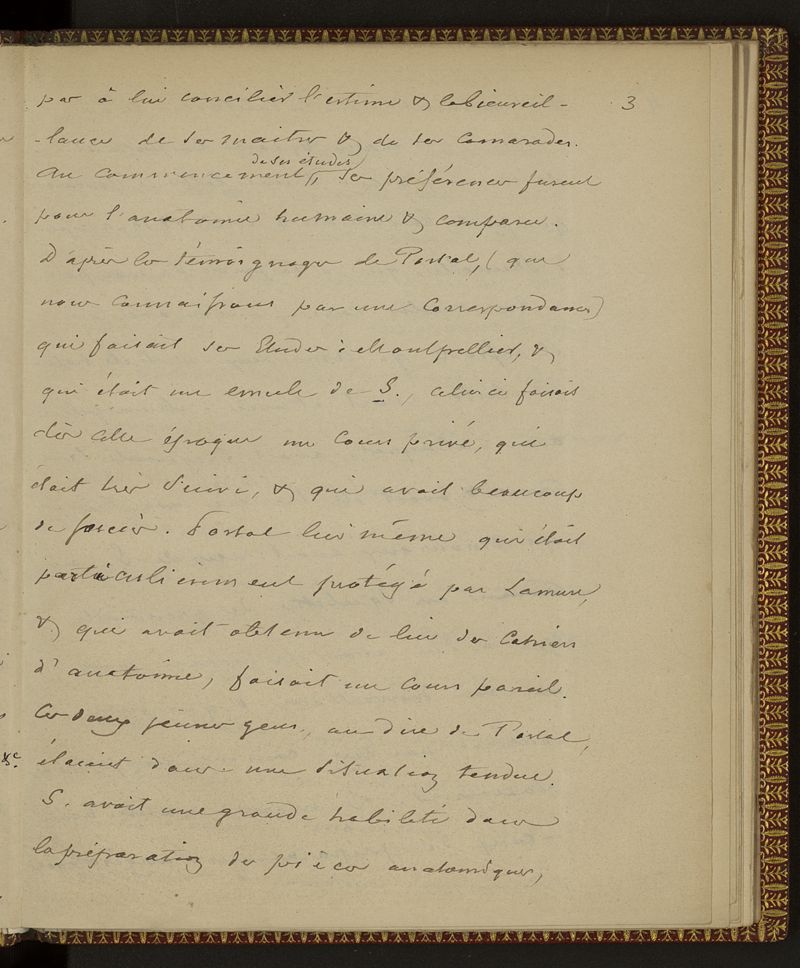 par à lui concilier l'estime & la bienveil- 3
-lance de ses maitres & de ses camarades.
de ses études
Au commencement, ses préférences furent
pour l'anatomie humaine & comparée.
D'après les témoignages de Portal, (que
nous connaissons par une correspondance)
qui faisait ses Etudes à Montpellier, &
qui était un emule de S., celui ci faisait
dès cette époque un Cours privé, qui
était très suivi, & qui avait beaucoup
de succès. Portal lui même qui était
particulièrement protégé par Lamure,
& qui avait obtenu de lui des Cahiers
d'anatomie, faisait un cours pareil.
Ces deux jeunes gens, au dire de Portal,
étaient dans une situation tendue.
S. avait une grande habileté dans
la préparation des pièces anatomiques,